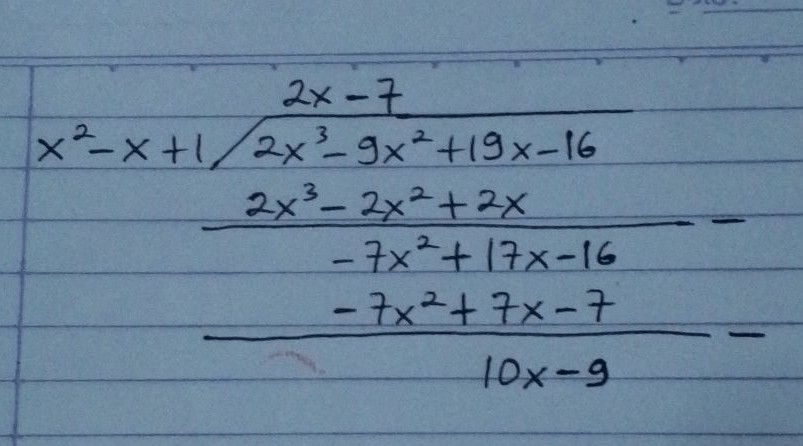 2x - 7
x² - x + 1 / 2x³ - 9x² + 19x - 16
2x³ - 2x² + 2x
-
-7x² + 17x - 16
-7x² + 7x - 7
-
10x - 9